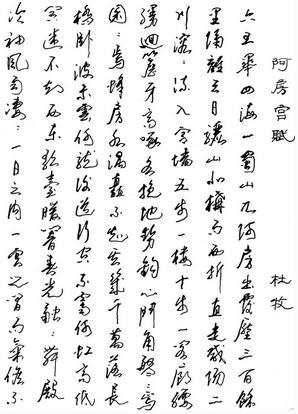 阿房宮賦 杜牧
六王畢四海一蜀山兀阿房出覆壓三百餘
里隔離天日驪山北構而西折直走咸陽二
川溶溶流入宮墻五步一樓十步一閣廊腰
縵迴簷牙高啄各抱地勢鉤心鬥角盤盤焉
囷囷焉蜂房水渦矗不知其幾千萬落長
橋臥波未雲何龍複道行空不霽何虹高低
冥迷不知西東歌臺暖響春光融融舞殿
冷袖風雨淒淒一日之內一宮之間而氣候不